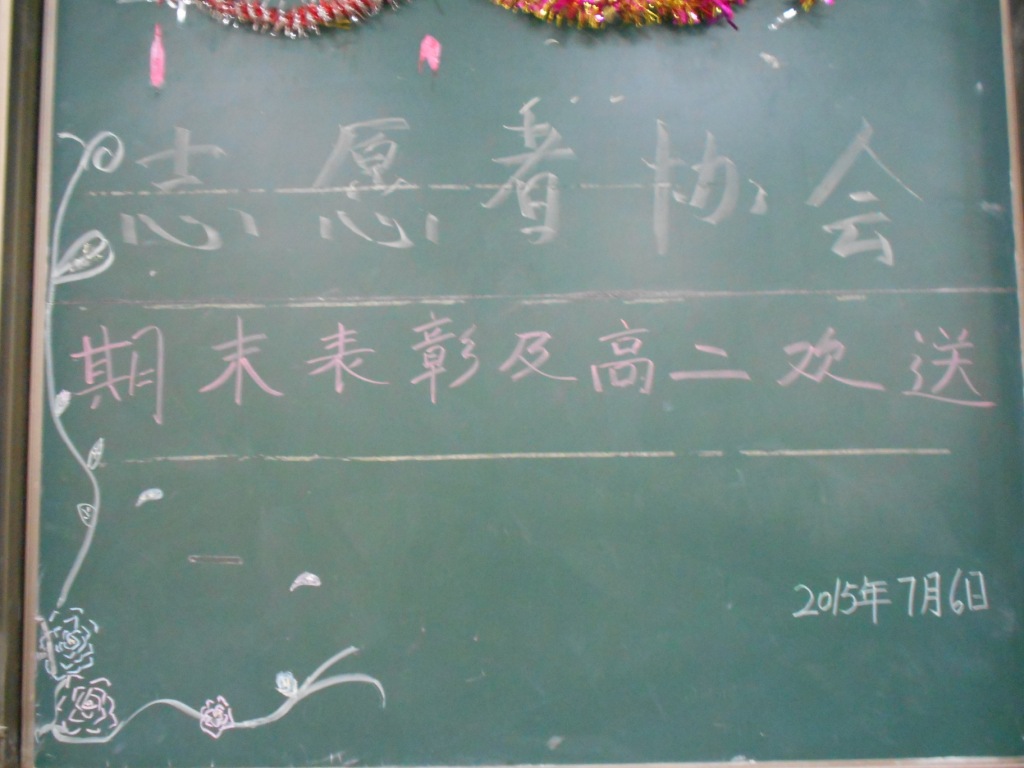 志愿者协会
期末表彰及高二欢送
2015年7月6日